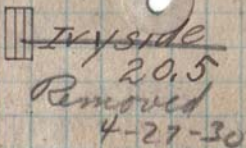 Ivyside
20.5
Removed
4-27-30